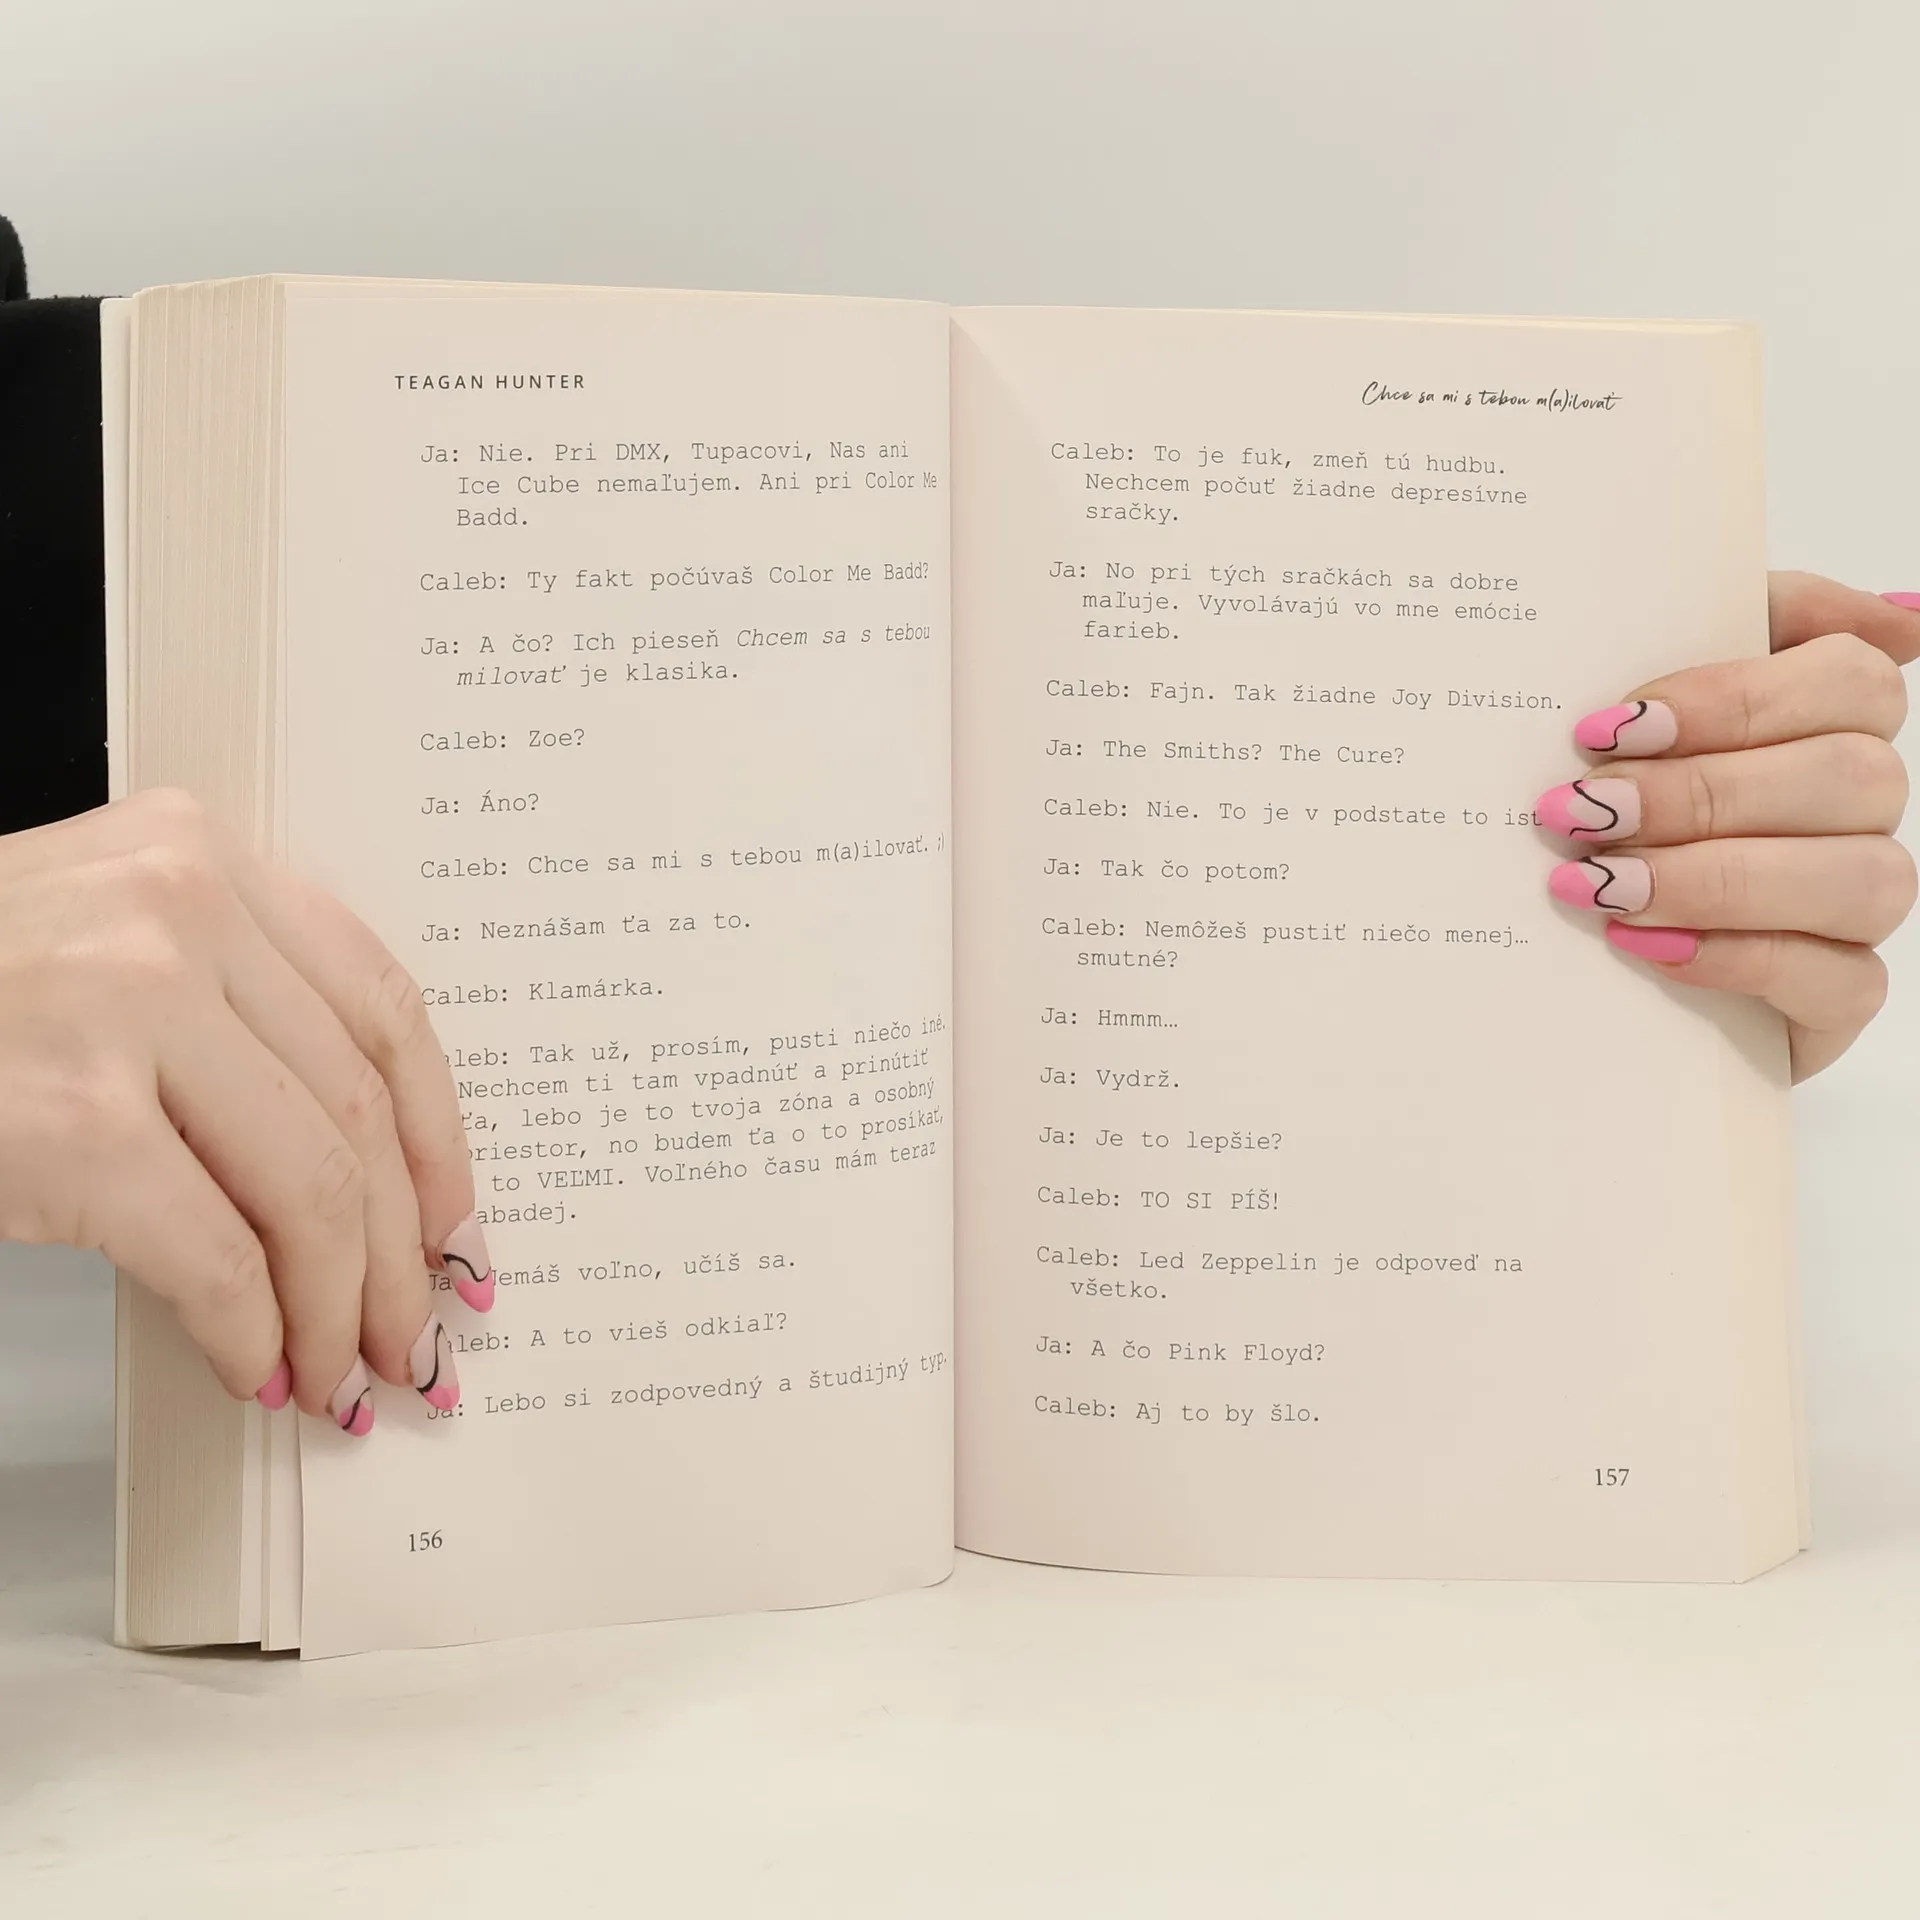 TEAGAN HUNTER
Ja: Nie. Pri DMX, Tupacovi, Nas ani
Ice Cube nemaľujem. Ani pri Color Me
Badd.
Caleb: Ty fakt počúvaš Color Me Badd?
Ja: A čo? Ich pieseň Chcem sa s tebou
milovať je klasika.
Caleb: Zoe?
Ja: Áno?
Caleb: Chce sa mi s tebou m(a)ilovať. ;)
Ja: Neznášam ťa za to.
Caleb: Klamárka.
Tak už, prosím, pusti niečo iné.
Nechcem ti tam vpadnúť a prinútiť
ťa, lebo je to tvoja zóna a osobný
no budem ťa o to prosíkať,
to VEĽMI. Voľného času mám teraz
Ja voľno, učíš sa.
A to vieš odkiaľ?
Ja: Lebo si zodpovedný a študijný typ.
156
Chce sa mi s tebou m(a)ilovať
Caleb: To je fuk, zmeň tú hudbu.
Nechcem počuť žiadne depresívne
sračky.
Ja: No pri tých sračkách sa dobre
maľuje. Vyvolávajú vo mne emócie
farieb.
Caleb: Fajn. Tak žiadne Joy Division.
Ja: The Smiths? The Cure?
Caleb: Nie. To je v podstate to
Ja: Tak čo potom?
Caleb: Nemôžeš pustiť niečo menej…
smutné?
Ja: Hmmm…
Ja: Vydrž.
Ja: Je to lepšie?
Caleb: TO SI PÍŠ!
Caleb: Led Zeppelin je odpoveď na
všetko.
Ja: A čo Pink Floyd?
Caleb: Aj to by šlo.
157